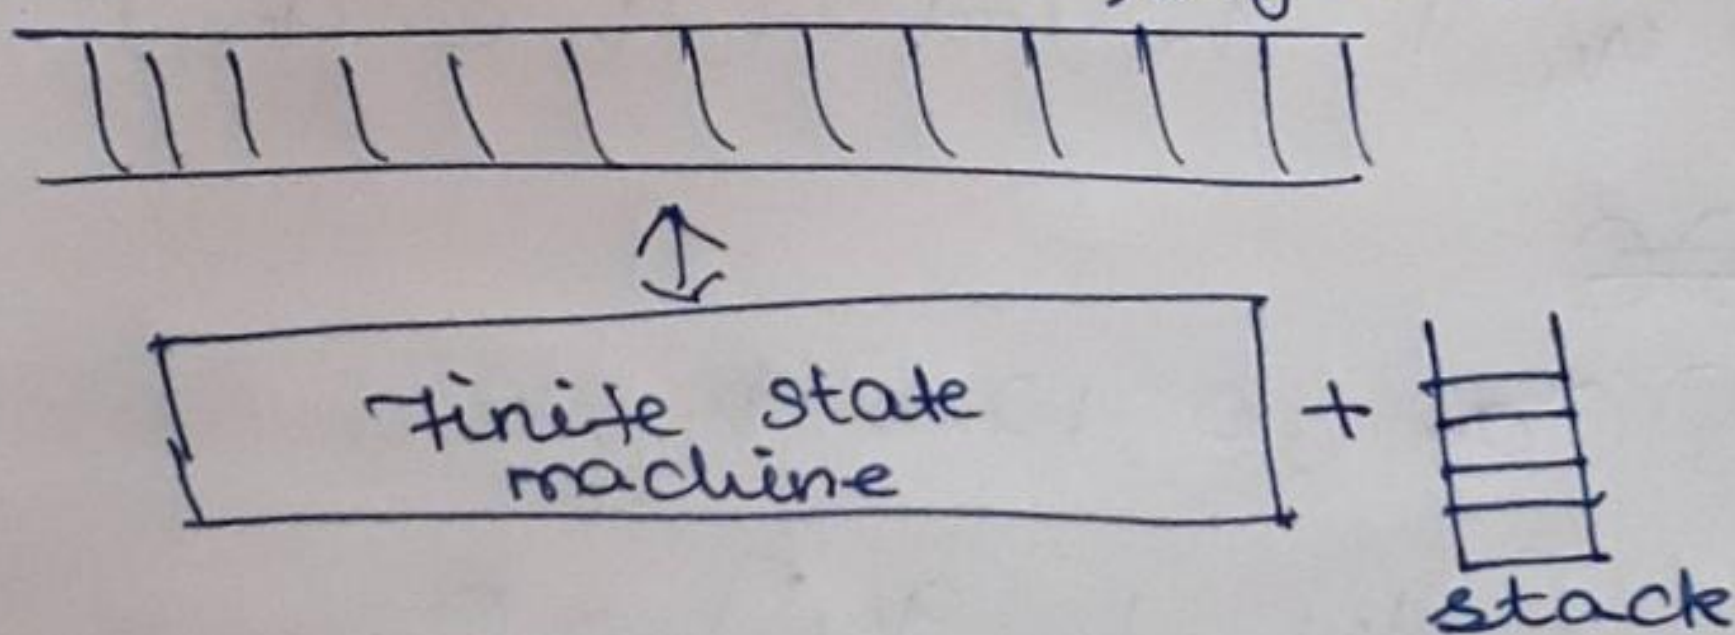 Finite state
machine
+
stack